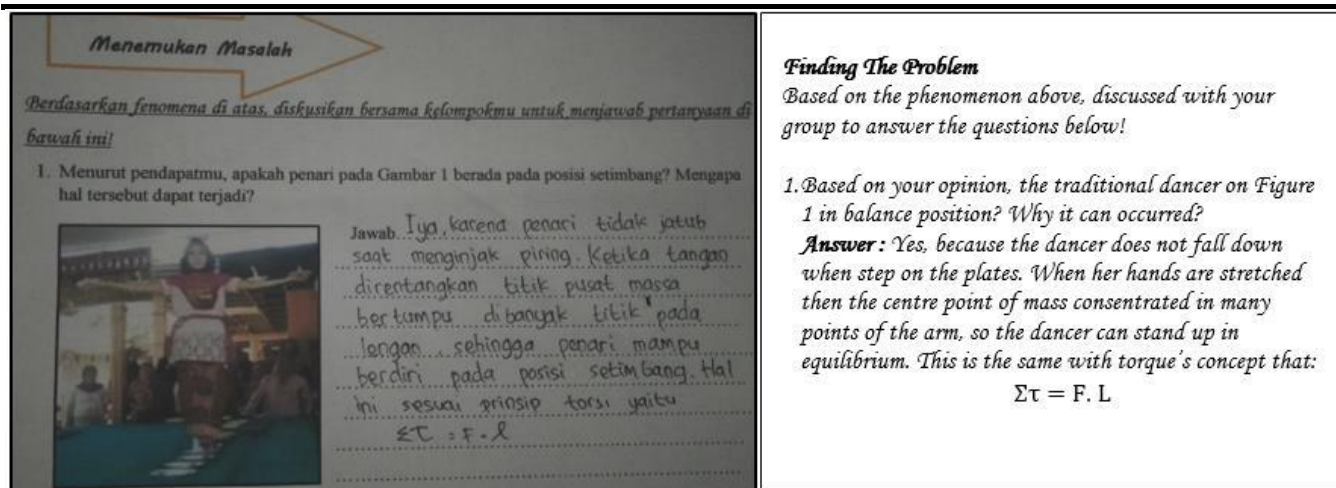 Menemukan Masalah
Berdasarkan fenomena di atas, diskusikan bersama kelompokmu untuk menjawab pertanyaan di
bawah ini!
1. Menurut pendapatmu, apakah penari pada Gambar 1 berada pada posisi setimbang? Mengapa
hal tersebut dapat terjadi?
Jawab Iya, karena penari tidak jatuh
saat menginjak piring. Ketika tangan
direntangkan titik pusat massa
bertumpu dibanyak titik" pada
lengan, sehingga penari mampu
berdiri pada posisi setimbang. Hal
ini sesuai prinsip torsi yaitu
ΣΤ = F . l
Finding The Problem
Based on the phenomenon above, discussed with your
group to answer the questions below!
1. Based on your opinion, the traditional dancer on Figure
1 in balance position? Why it can occurred?
Answer : Yes, because the dancer does not fall down
when step on the plates. When her hands are stretched
then the centre point of mass consentrated in many
points of the arm, so the dancer can stand up in
equilibrium. This is the same with torque's concept that:
Στ = F. L